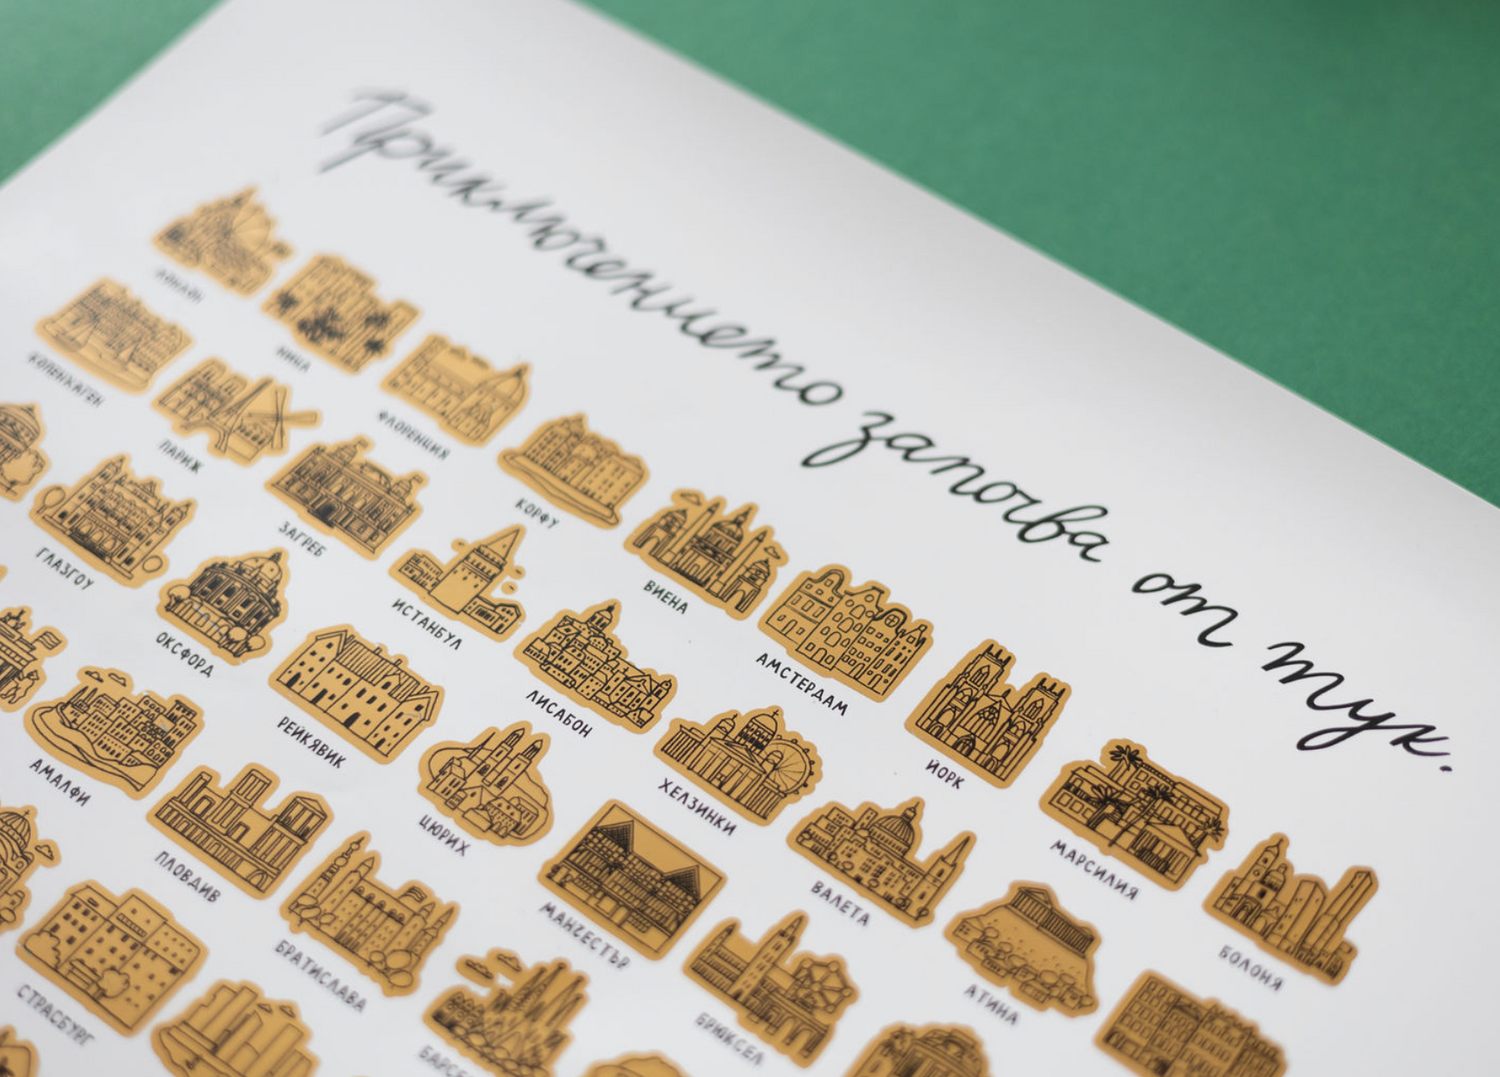 Приключението започва от тук.
ЛОНДОН
НИЦА
ФЛОРЕНЦИЯ
КОРФУ
ВИЕНА
АМСТЕРДАМ
ЙОРК
МАРСИЛИЯ
БОЛОНЯ
КОПЕНХАГЕН
ПАРИЖ
ЗАГРЕБ
ИСТАНБУЛ
ЛИСАБОН
ХЕЛЗИНКИ
ВАЛЕТА
АТИНА
ГЛАЗГОУ
ОКСФОРД
РЕЙКЯВИК
ЦЮРИХ
МАНЧЕСТЪР
БРЮКСЕЛ
АМАЛФИ
ПЛОВДИВ
БРАТИСЛАВА
БАРСЕ
СТРАСБУРГ